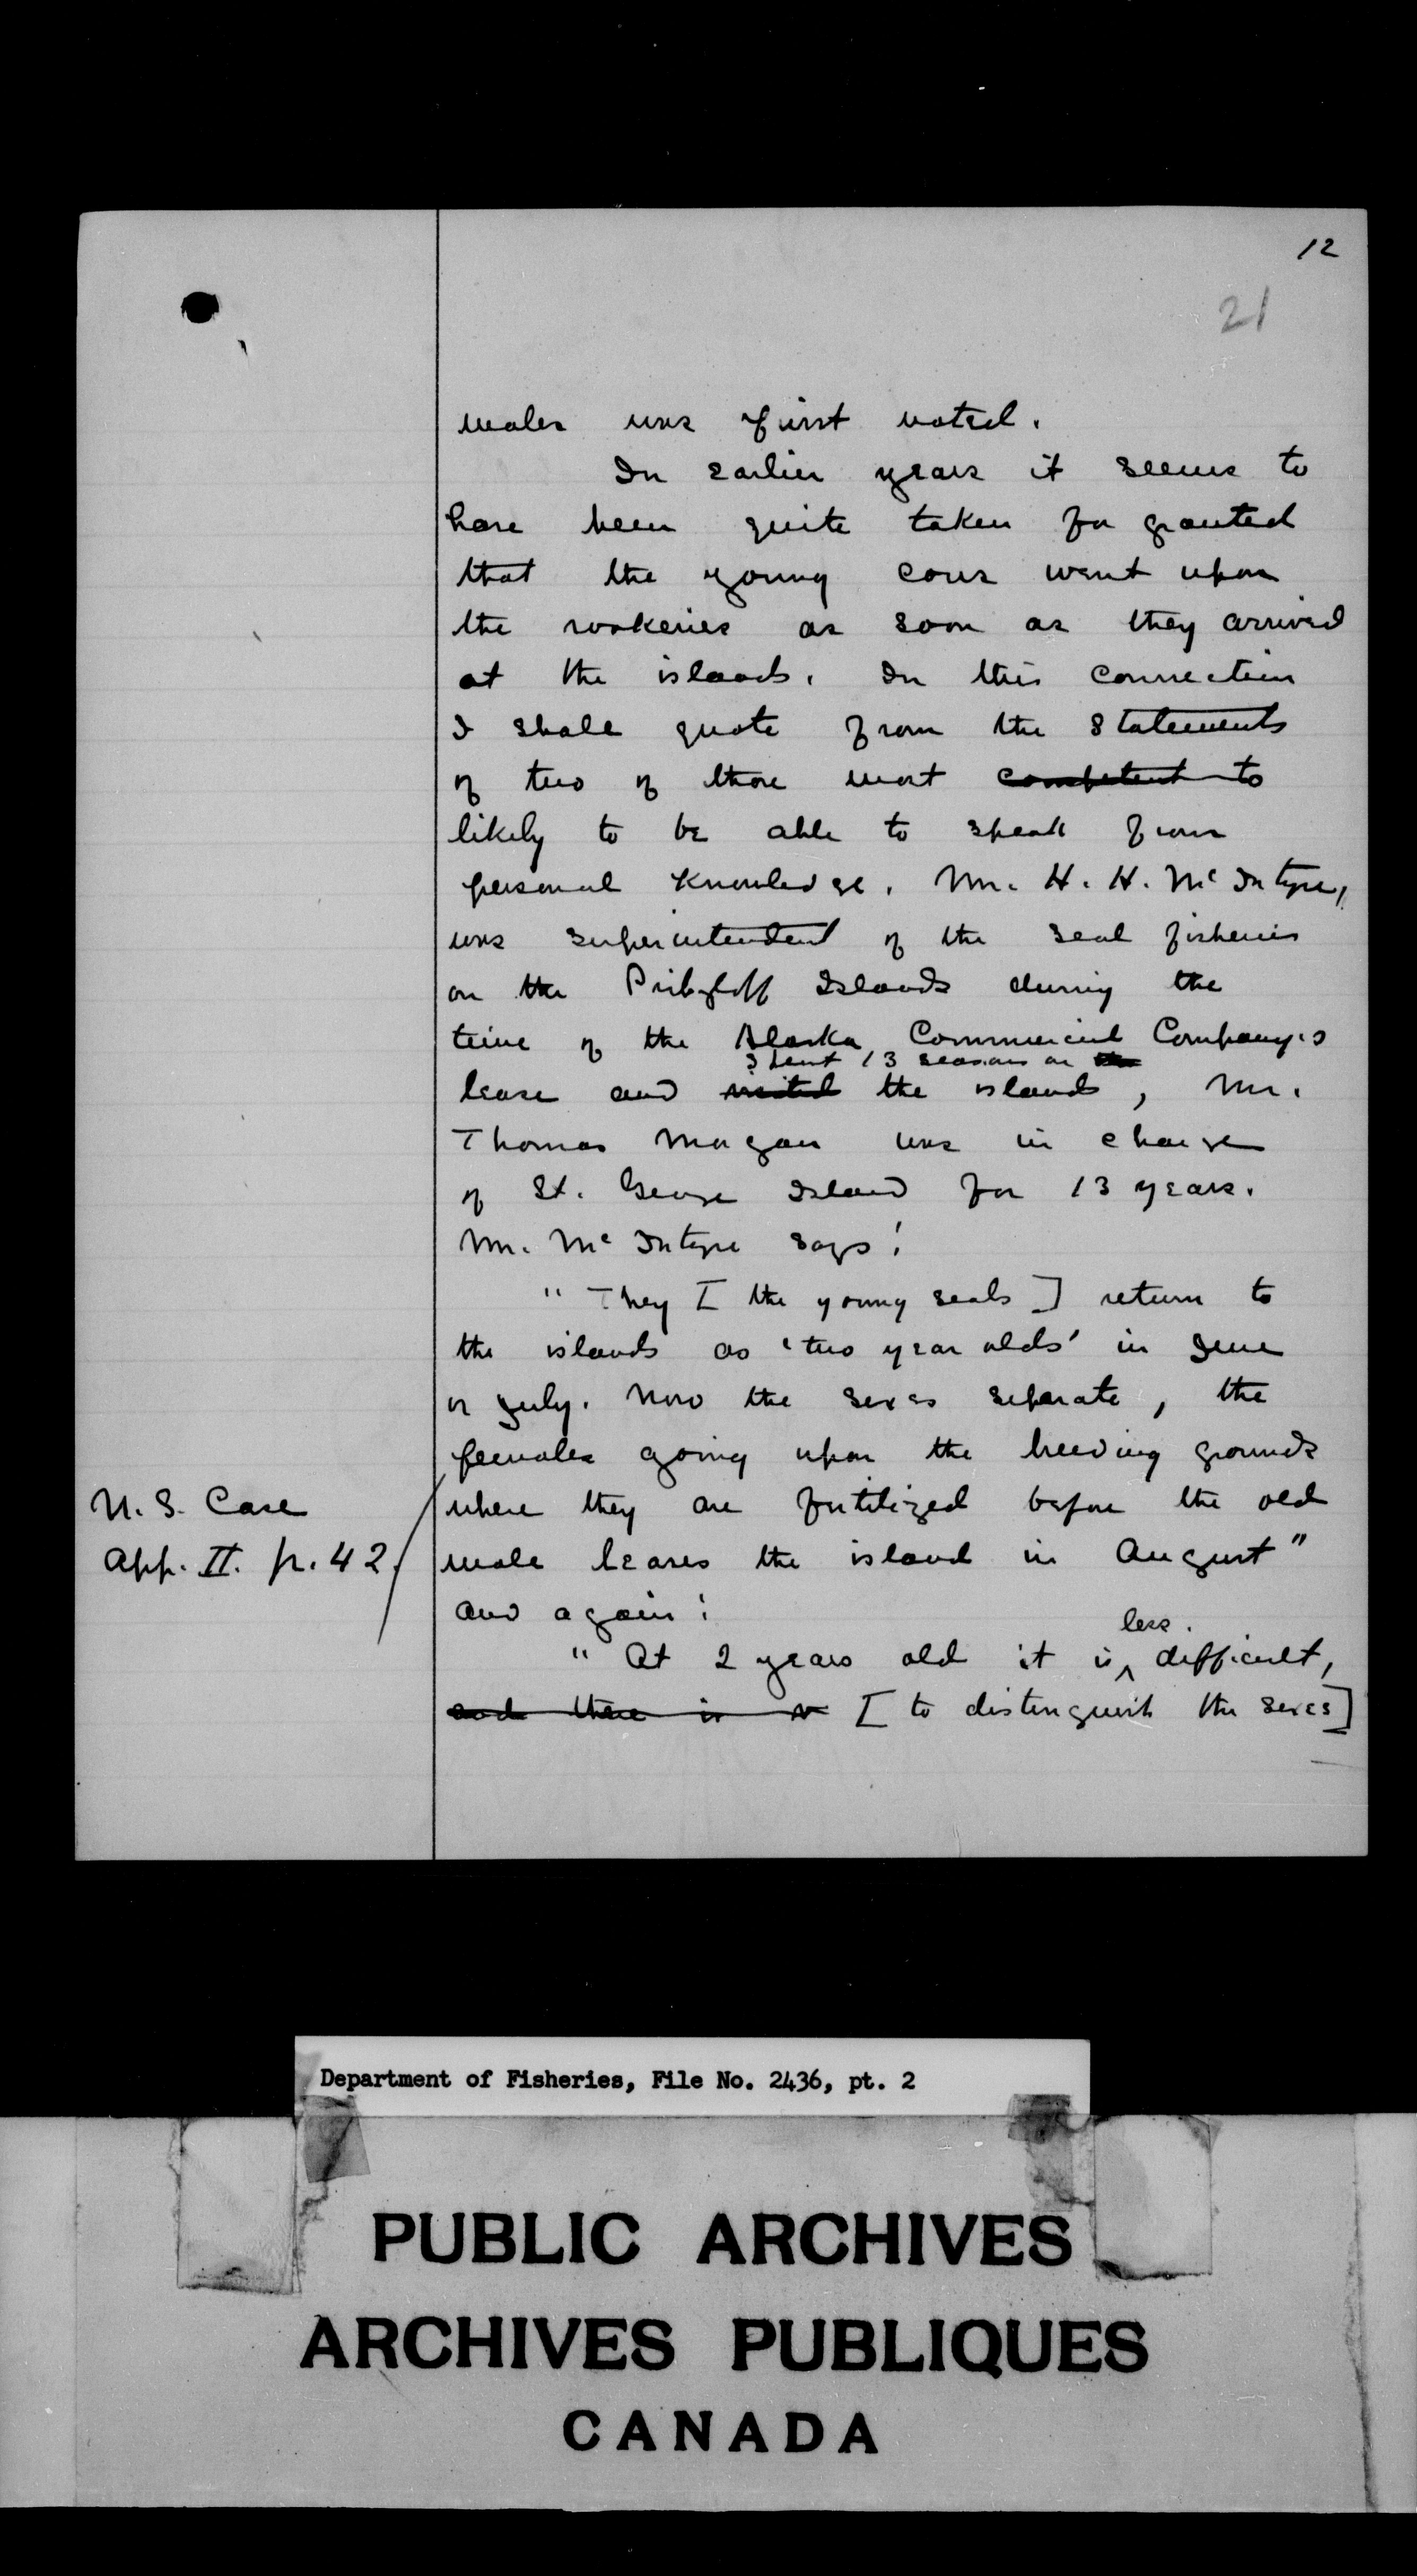 12
21
males was first noted.
In earlier years it seems to
have been quite taken for granted
that the young cows went upon
the rookeries as soon as they arrived
at the islands. In this connection
I shall quote from the statements
of two of those most competent to
likely to be able to speak from
personal knowledge. Mr. H. H. McIntyre,
was superintendent of the seal fisheries
on the Pribyloff Islands during the
time of the Alaska Commercial Company's
spent 13 seasons on the
lease and visited the islands, Mr.
Thomas Morgan was in charge
of St. George Island for 13 years.
Mr. McIntyre says:
"They [the young seals] return to
the islands as 'two year olds' in June
or July. Now the sexes separate, the
females going upon the breeding grounds
U. S. Case
where they are fertilized before the old
App. II. p. 42.
male leaves the island in August"
and again:
less
"At 2 years old it is ^ difficult,
and there is n [to distinguish the sexes]
Department of Fisheries, File No. 2436, pt. 2
PUBLIC ARCHIVES
ARCHIVES PUBLIQUES
CANADA